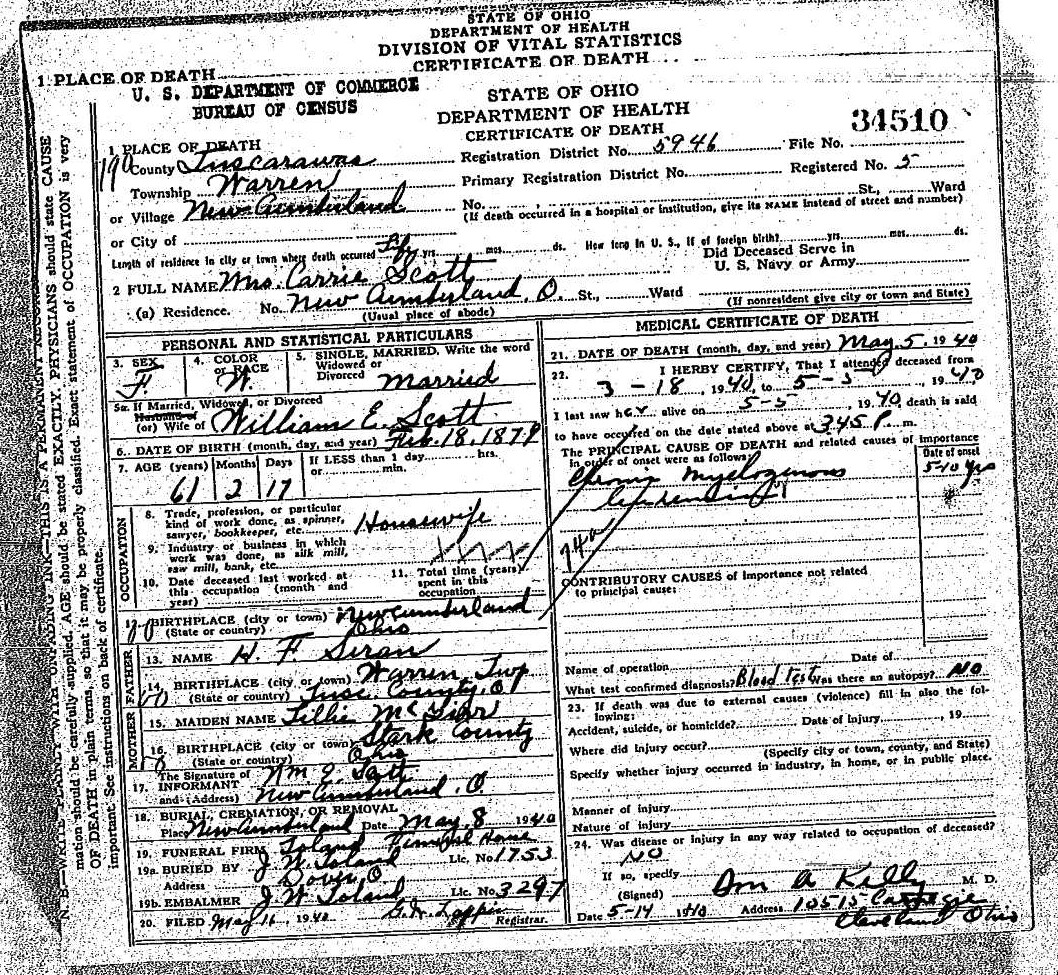 STATE OF OHIO
DEPARTMENT OF HEALTH
DIVISION OF VITAL STATISTICS
CERTIFICATE OF DEATH
1 PLACE OF DEATH
U. S. DEPARTMENT OF COMMERCE
BUREAU OF CENSUS
STATE OF OHIO
DEPARTMENT OF HEALTH
CERTIFICATE OF DEATH
34510
1 PLACE OF DEATH
County Tuscarawas
Registration District No. 5946 File No.
Township Warren
Primary Registration District No. Registered No. 5
or Village New Cumberland
No. , St., Ward
(If death occurred in a hospital or institution, give its NAME instead of street and number)
or City of
Length of residence in city or town where death occurred Life yrs. mos. ds. How long in U. S., if of foreign birth? yrs. mos. ds.
2 FULL NAME Mrs. Carrie Scott
Did Deceased Serve in
U. S. Navy or Army
(a) Residence. No. New Cumberland, O. St., Ward
(Usual place of abode)
(If nonresident give city or town and State)
PERSONAL AND STATISTICAL PARTICULARS
3. SEX
F.
4. COLOR
or RACE
W.
5. SINGLE, MARRIED, Write the word
Widowed or
Divorced Married
5a. If Married, Widowed, or Divorced
Husband of
(or) Wife of William E. Scott
6. DATE OF BIRTH (month, day, and year) Feb. 18, 1879
7. AGE (years) Months Days
If LESS than 1 day hrs.
or min.
61 2 17
OCCUPATION
8. Trade, profession, or particular
kind of work done, as spinner,
sawyer, bookkeeper, etc. Housewife
9. Industry or business in which
work was done, as silk mill,
saw mill, bank, etc.
10. Date deceased last worked at
this occupation (month and
year)
11. Total time (years)
spent in this
occupation
BIRTHPLACE (city or town) New Cumberland
(State or country) Ohio
FATHER
13. NAME H. F.
14. BIRTHPLACE (city or town) Warren Twp
(State or country) Tusc. County, O
MOTHER
15. MAIDEN NAME Lillie
16. BIRTHPLACE (city or town) Stark County
(State or country) Ohio
17. The Signature of
INFORMANT Wm E. Scott
and (Address) New Cumberland, O.
18. BURIAL, CREMATION, OR REMOVAL
Place New Cumberland Date May 8 1940
19. FUNERAL FIRM Toland Funeral Home
19a. BURIED BY J. W. Toland Lic. No 1753
Address Dover, O
19b. EMBALMER J W. Toland Lic. No 3297
20. FILED May 16, 1940 Registrar.
MEDICAL CERTIFICATE OF DEATH
21. DATE OF DEATH (month, day, and year) May 5, 1940
22. I HERBY CERTIFY, That I attended deceased from
3-18, 1940, to 5-5, 1940
I last saw her alive on 5-5 1940, death is said
to have occurred on the date stated above at 3:45 P. m.
The PRINCIPAL CAUSE OF DEATH and related causes of importance
in order of onset were as follows:
Date of onset
Chronic Myelogenous
Leukemia
5-10 yrs
74a
CONTRIBUTORY CAUSES of importance not related
to principal cause:
Name of operation Date of
What test confirmed diagnosis? Blood Test Was there an autopsy? NO
23. If death was due to external causes (violence) fill in also the fol-
lowing:
Accident, suicide, or homicide? Date of injury , 19
Where did injury occur?
(Specify city or town, county, and State)
Specify whether injury occurred in industry, in home, or in public place.
Manner of injury
Nature of injury
24. Was disease or injury in any way related to occupation of deceased?
NO
If so, specify
(Signed) A Kelly M. D.
Date 5-14 1940 Address 10515 Carnegie
Cleveland Ohio
N. B.—WRITE PLAINLY WITH UNFADING INK—THIS IS A PERMANENT RECORD
mation should be carefully supplied. AGE should be stated EXACTLY. PHYSICIANS should state CAUSE
OF DEATH in plain terms, so that it may be properly classified. Exact statement of OCCUPATION is very
important See instructions on back of certificate.